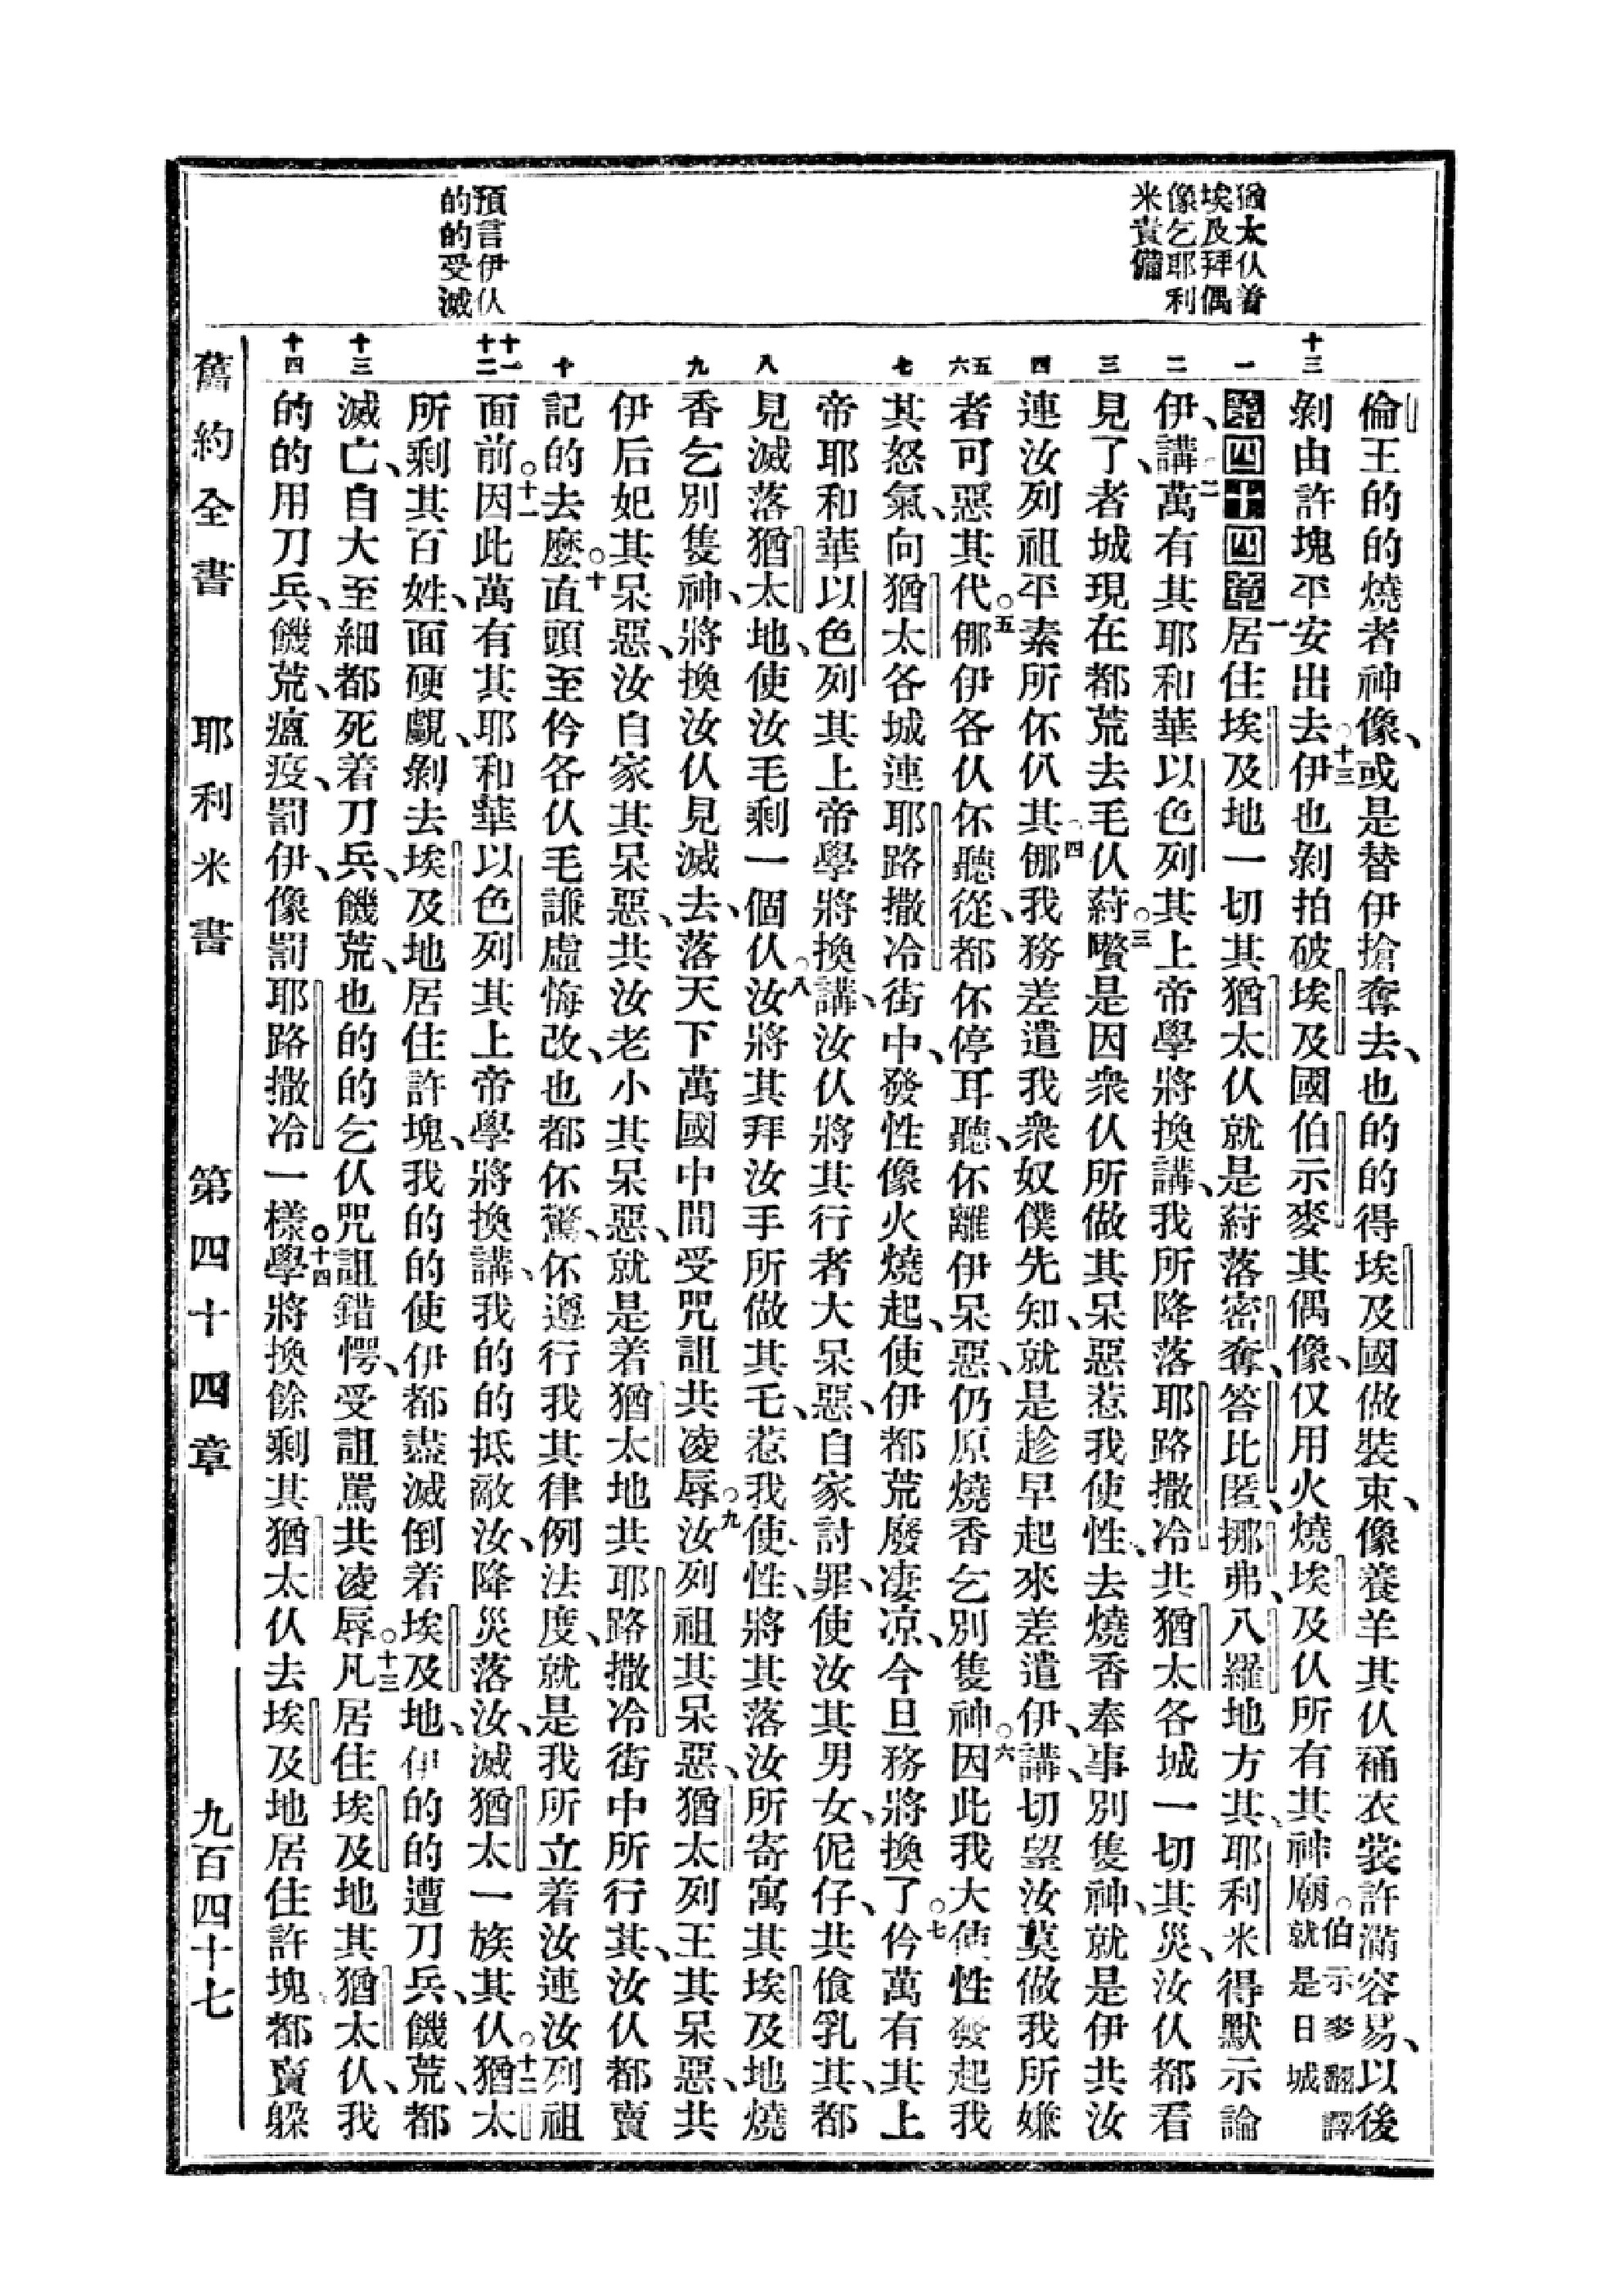 猶太仫着
埃及拜偶
像乞耶利
米責備
預言伊仫
的的受滅
十三
一
二
三
四
五
六
七
八
九
十
十一
十二
十三
十四
倫王的的燒者神像、或是替伊搶奪去、也的的得埃及國做裝束、像養羊其仫補衣裳許滿容易、以後
剝由許塊平安出去○十三伊也剝拍破埃及國伯示麥其偶像、仅用火燒埃及仫所有其神廟○伯示麥翻譯就是日城
第四十四章一居住埃及地一切其猶太仫就是䓁落密奪、答比匿、挪弗、八羅地方其、耶利米得默示論
伊、講、二萬有其耶和華以色列其上帝學將換講、我所降落耶路撒冷共猶太各城一切其災、汝仫都看
見了、者城現在都荒去毛仫䓁○三是因衆仫所做其呆惡惹我使性、去燒香奉事別隻神、就是伊共汝
連汝列祖平素所伓仈其、四㑚我務差遣我衆奴僕先知、就是趁早起來差遣伊、講、切望汝莫做我所嫌
者可惡其代○五㑚伊各仫伓聽從、都伓停耳聽、伓離伊呆惡、仍原燒香乞別隻神○六因此我大使性發起我
其怒氣、向猶太各城連耶路撒冷街中、發性像火燒起、使伊都荒廢凄凉、今旦務將換了○七仱萬有其上
帝耶和華以色列其上帝學將換講、汝仫將其行者大呆惡、自家討罪、使汝其男女、伲仔、共食乳其、都
見滅落猶太地、使汝毛剩一個仫○八汝將其拜汝手所做其毛、惹我使性、將其落汝所寄寓其埃及地燒
香乞別隻神、將換汝仫見滅去、落天下萬國中間受咒詛共凌辱○九汝列祖其呆惡、猶太列王其呆惡、共
伊后妃其呆惡、汝自家其呆惡、共汝老小其呆惡、就是着猶太地共耶路撒冷街中所行其、汝仫都賣
記的去麽○十直頭至仱各仫毛謙虛悔改、也都伓驚、伓遵行我其律例法度、就是我所立着汝連汝列祖
面前○十一因此萬有其耶和華以色列其上帝學將換講、我的的抵敵汝、降災落汝、滅猶太一族其仫○十二猶太
所剩其百姓、面硬覷、剝去埃及地居住許塊、我的的使伊都盡滅倒着埃及地、伊的的遭刀兵、饑荒、都
滅亡、自大至細都死着刀兵、饑荒、也的的乞仫咒詛錯愕、受詛罵共凌辱○十三凡居住埃及地其猶太仫、我
的的用刀兵、饑荒、瘟疫、罰伊、像罰耶路撒冷一樣○十四學將換餘剩其猶太仫去埃及地居住許塊、都賣躲
舊約全書　耶利米書　第四十四章　九百四十七